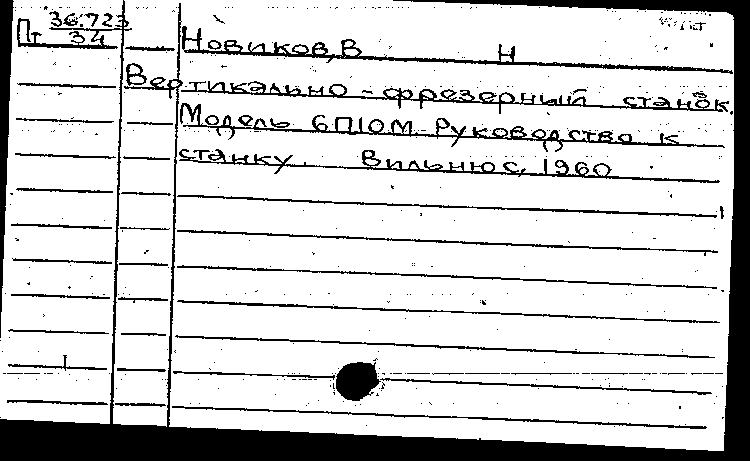 36.723
Пт 34
Новиков, В Н
Вертикально-фрезерный станок.
Модель 6П10М. Руководство к
станку. Вильнюс, 1960